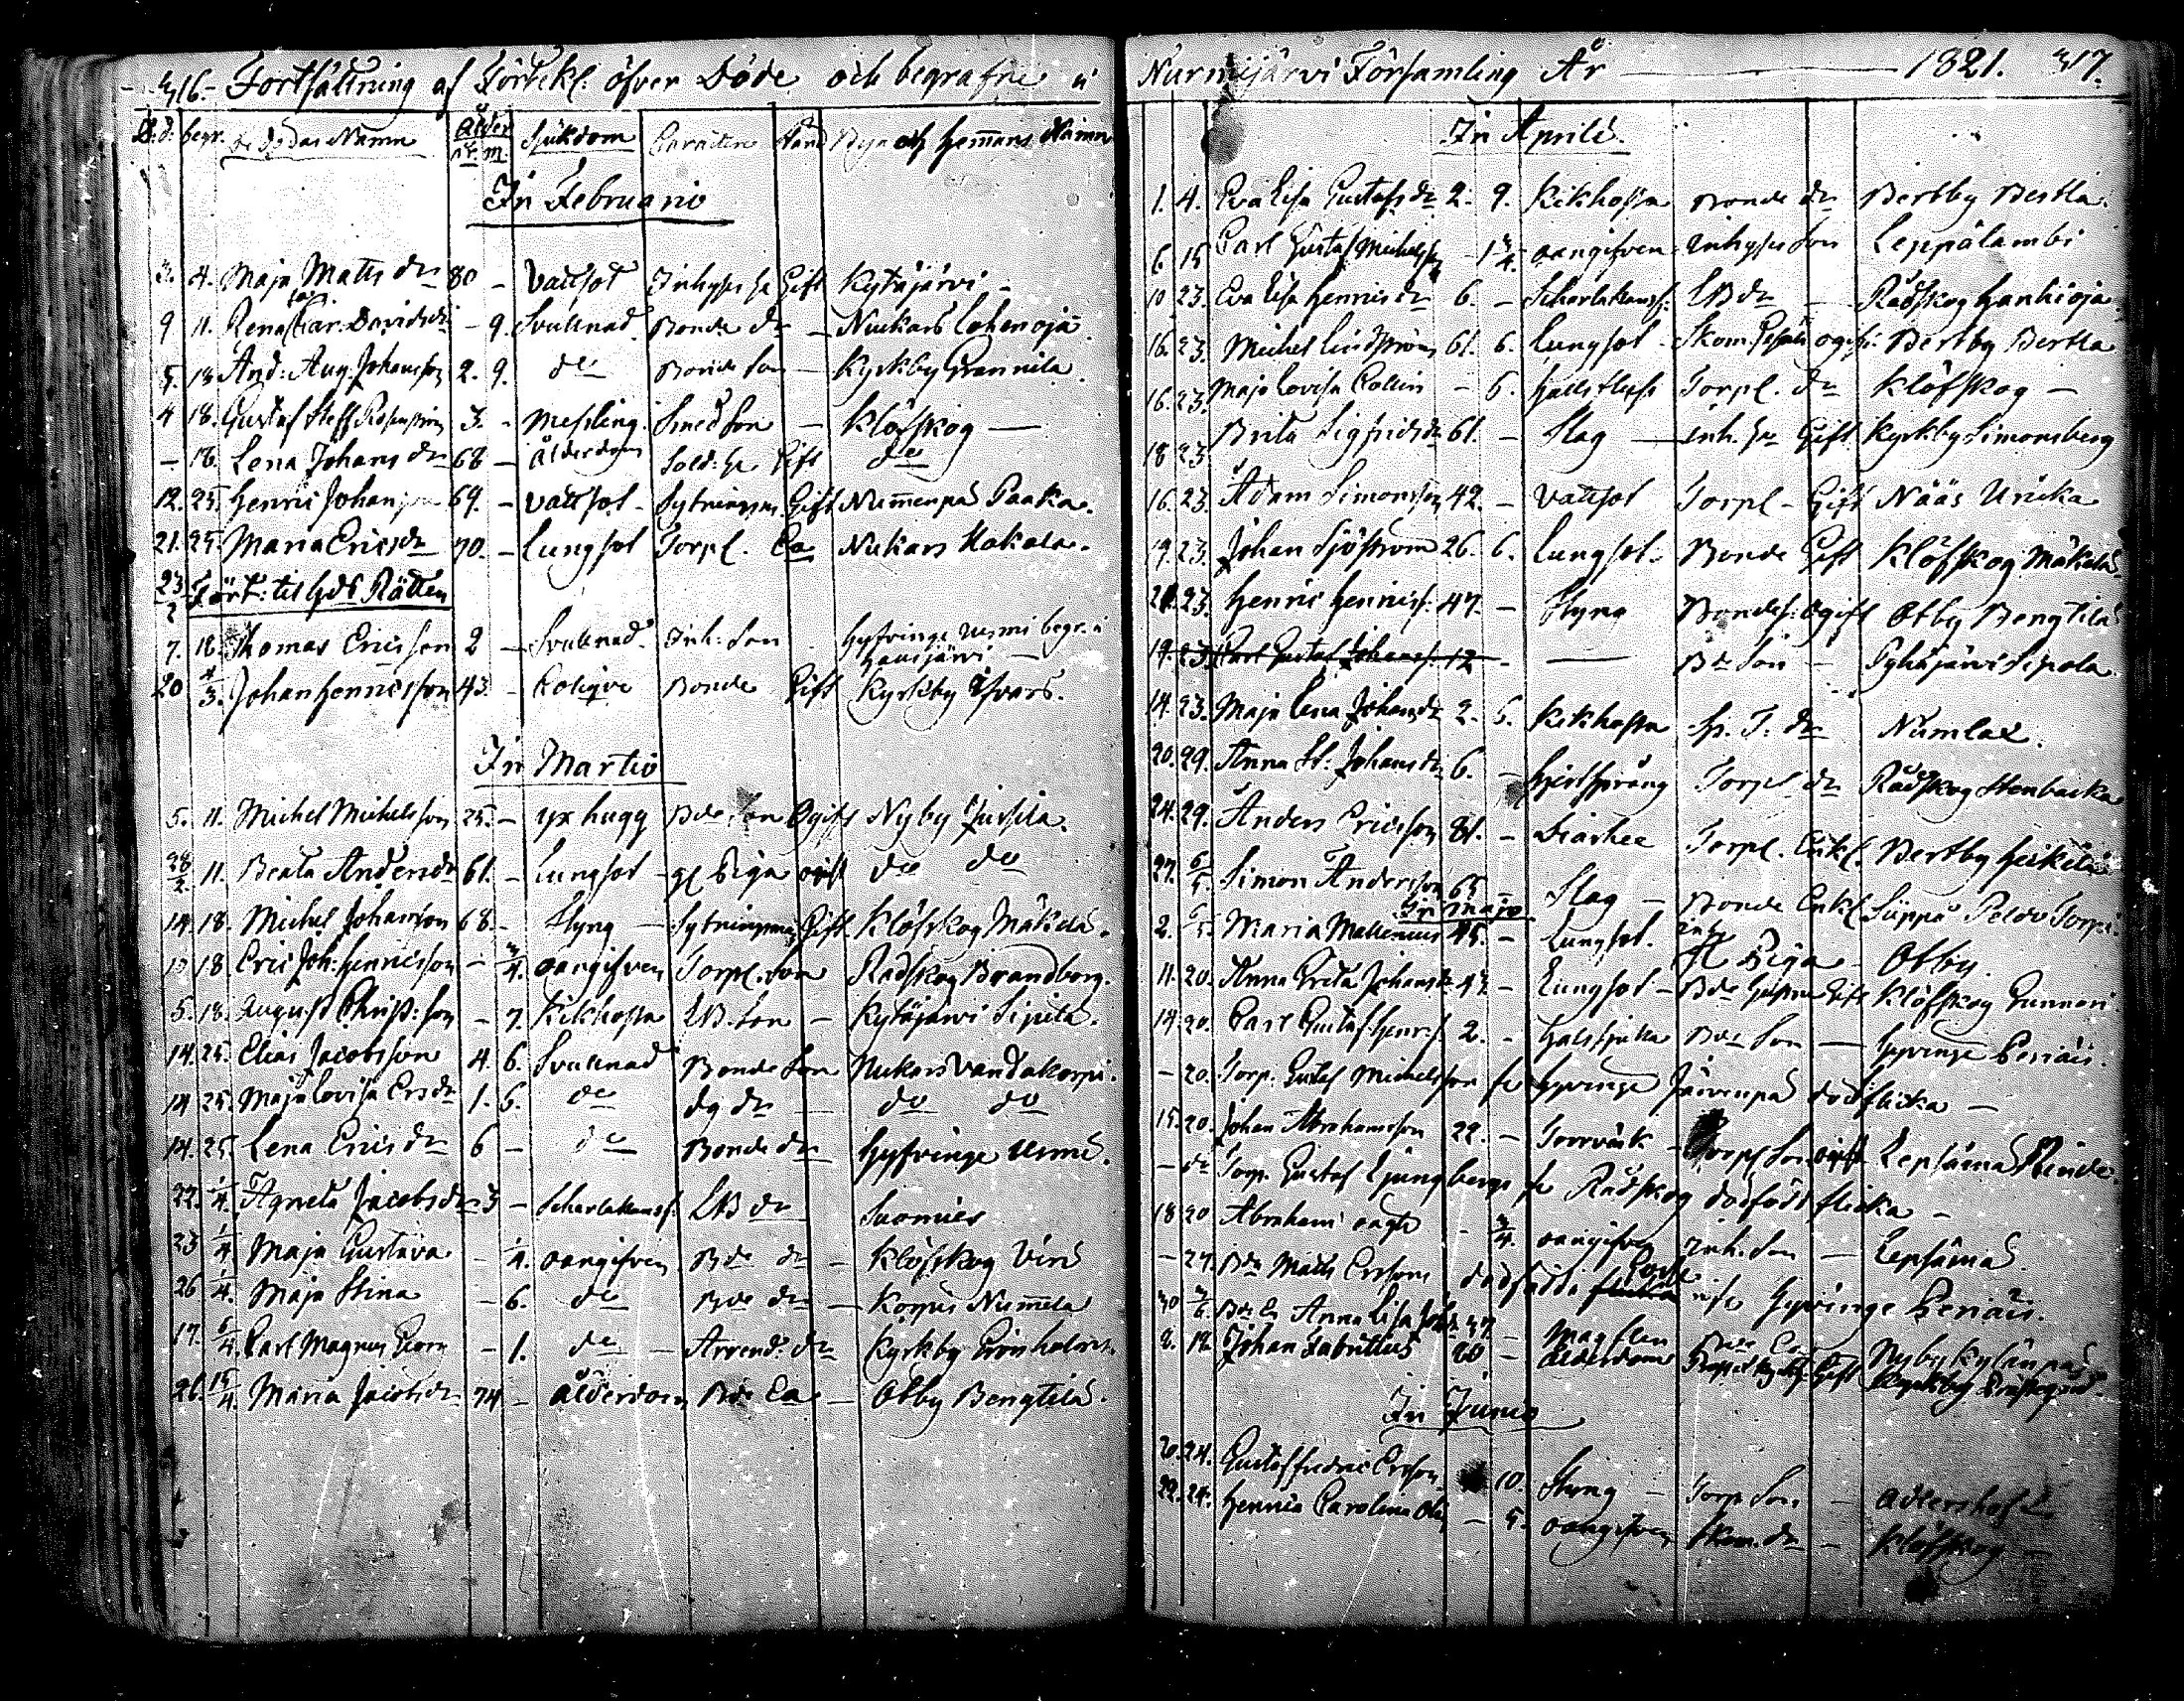 316. Fortsättning af Förtekl. öfver Döde och begrafne i
D.d: begr. de dödas Namn Ålder År. M. Sjukdom Caracter Stånd Byn och Hemans Namn
In Februario
3. 4. Maja Matts dr 80 - Vattsot Inhyses Gift Kytäjärvi -
9 11. Rena Car. Davidsdr - 9. Svullnad Bonde dr - Nuckars Lohenoja
5. 18 And: Aug. Johansson 2. 9. do Bonde Son - Kyrkby Grannila
4 18. Gustaf Steff 3. - Messling. Smed Son - Klöfskog -
- 18. Lena Johans dr 68 - Ålderdom Sold: Gift do
12. 25. Henric Johansson 69. - Vattsot - Sytningsm. Gift Nummenpää Paaka.
21. 25. Maria Ericsdr 70. - Lungsot Torpl. Ea Nukars Kokala.
23/2 Fört: til Hds Rätten
7. 18. Thomas Ericsson 2 - Svullnad Inh: Son Hyfvinge Usmi begr. i Hausjärvi -
20 4/3. Johan Henricsson 43. - Kolique Bonde Gift Kyrkby Ifvars.
In Martio
5. 11. Michel Michelsson 25. - yxhugg Bde Son Ogift Nyby Jussila.
28/2. 11. Beata Andersdr 61. - Lungsot - gl Piga ogift do do
14. 18. Michel Johansson 68. - Styng - Sytningsman Gift Klöfskog Mäkelä.
10 18 Eric Joh: Henricsson - 3/4. oangifven Torpl. son Radskog Brandborg.
5. 18. August Christ: son - 7. Kikhosta LB. Son - Kytäjärvi Sipilä.
14. 25. Elias Jacobsson 4. 6. Svullnad Bonde Son Nukars Vandakorpi.
14 25. Maja Lovisa Ersdr 1. 5. do do dr - do do
14. 25. Lena Erics dr 6 - do Bonde dr Hyfvinge Usmi.
22. 1/4. Agneta Jacobsdr 3 - Scharlakansf. LB dr Suomies
23 1/4 Maja Gustava - 1/4. oangifven Bde dr - Klöfskog Viri
26 1/4. Maja Stina - 6. do Bde dr - Korpis Nummela
17. 8/4. Carl Magnus - 1. do - Arrend: dr Kyrkby Grönholm.
26. 15/4. Maria Jacobsdr 74 - ålderdom Bde Ea - Otby Bengtilä.
Nurmijärvi Församling År - 1821. 317.
In Aprili.
1. 4. Eva Lisa Gustafsdr 2. 9. Kikhosta Bonde dr Bertby Bertla.
6. 15 Carl Gustaf Michelsson - 1 3/4. oangifven Inhyses Son Leppälambi
10 23. Eva Lisa Henricsdr 6. - Scharlakansf: LB dr - Rädskog Hanhioja
16. 23. Michel Lindström 61. 6. Lungsot - Skom. ogift: Bertby Bertla
16. 23. Maja Lovisa Collin - 6. Torpl. dr Klöfskog -
18 23 Brita Sigfridsdr 61. - Slag - Inh. Gift Kyrkby Simonsberg
16. 23. Adam Simonsson 42. - Vattsot Torpl - Gift Nääs Uricka
19. 23. Johan Sjöström 26. 6. Lungsot. Bonde Gift Klöfskog Mäkelä
21. 23. Henric Henricss: 47. - Styng Bondes: Ogift Otby Bengtilä
19. 23. Carl Gustaf Johanss: 12 - - Bde Son - Pyhäjärvi Sipola.
14. 23. Maja Lena Johansdr 2. 5. Kikhosta Sp. T. dr Numlax.
20. 29. Anna St: Johansdr 6. - Hjertsprång Torpl dr Rädskog Stenbacka
24. 29. Anders Ericsson 81. - Diarhee Torpl. Enkl. Bertby Heikkilä
27. 6/5. Simon Andersson 65 - Slag - Bonde Enkl. Torpi.
In Majo
2. 6/5. Maria Mallenius 45. - Lungsot. Inh Piga - Otby.
11. 20. Anna Greta Johansdr 47. - Lungsot - Bde Gift Klöfskog Gunnari
14. 20. Carl Gustaf Henr:s 2. - Halssjuka Bde Son - Hyvinge Periäis.
- 20. Torp. Gustaf Michelsson fr Hyvinge Järvenpää dödf. flicka -
15. 20. Johan Abrahamsson 22. - Torrvärk - Torpl Son ogift Lepsämä Rinde.
- do Torp. Gustaf Ljungbergs fr Rädskog dödfödt flicka -
18 20 Abraham oägta - 3/4. oangifven Inh. Son - Lepsämä.
- 27. Bdn Matts Erssons dödfödda Hyvinge Periäis.
30 3/6. Bde Anna Lisa 37. - Magflen Bde Ea Nyby Kylänpää
8. 18. Johan Fabritius 80 - Ålderdom Gift Kyrkby
In Junio
20. 24. Gustaf Fredric Ersson 10. Styng - Torp Son - Adlershof
22. 24. Hennica Carolina - 5. oangifven Skom. dr - Klöfskog -